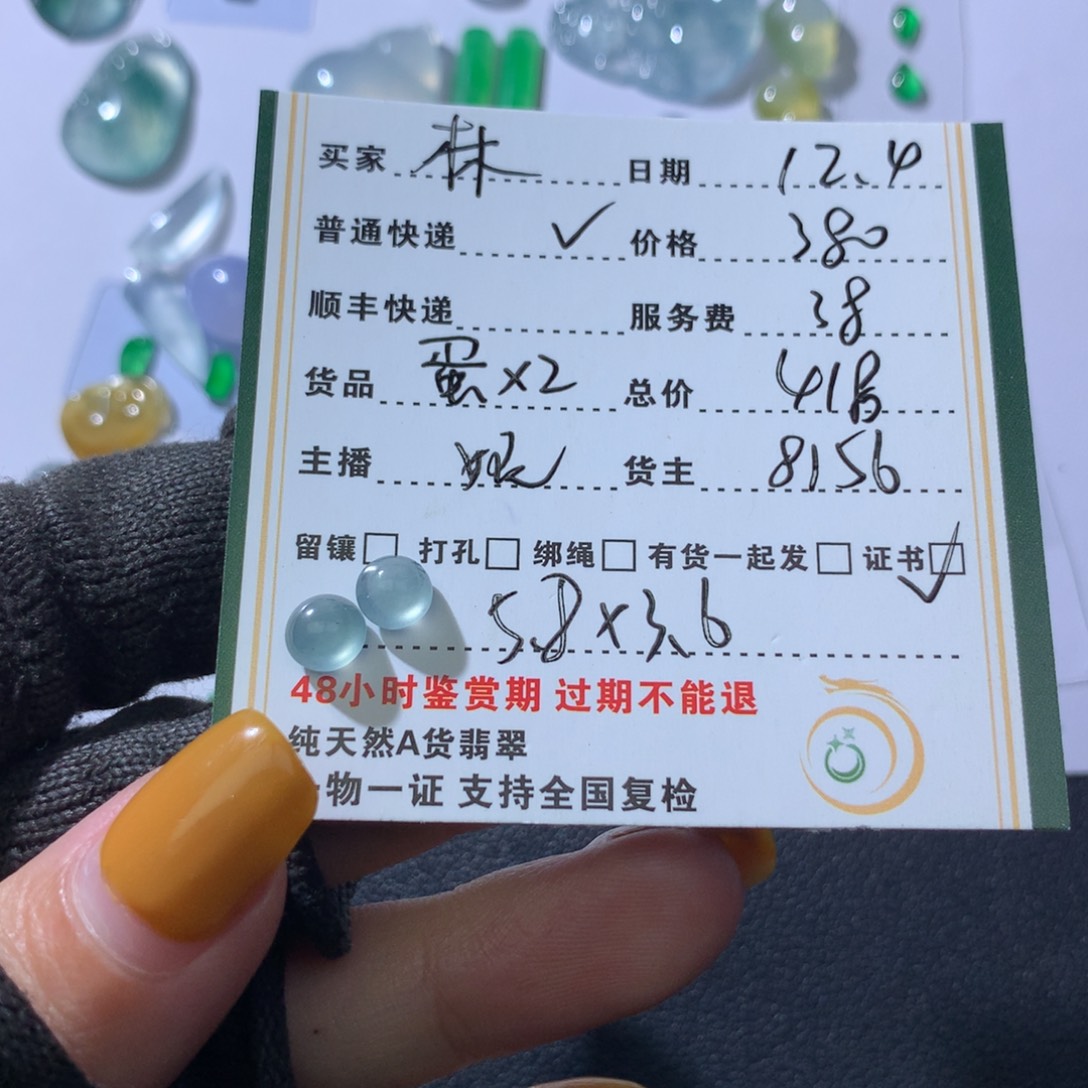 买家 林 日期 12.4
普通快递 ✓ 价格 380
顺丰快递 服务费 38
货品 蛋×2 总价 418
主播 货主 8156
留镶□ 打孔□ 绑绳□ 有货一起发□ 证书☑
5.8×3.6
48小时鉴赏期 过期不能退
纯天然A货翡翠
物一证 支持全国复检